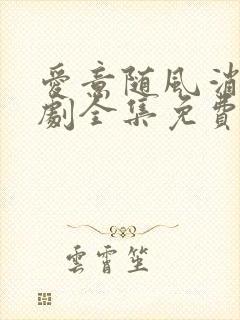 愛意随风消
劇全集免費
雲霄笙